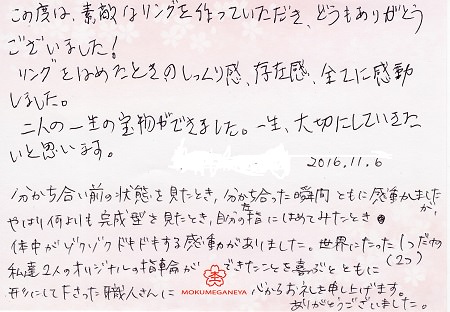 この度は、素敵なリングを作っていただき、どうもありがとう
ございました!
リングをはめたときのしっくり感、存在感、全てに感動
しました。
二人の一生の宝物ができました。一生、大切にしていきた
いと思います。
2016.11.6
分かち合い前の状態を見たとき、分かち合った瞬間ともに感動しました
が、
やはり何よりも完成型を見たとき、自分の指にはめてみたとき
体中がゾクゾクドキドキする感動がありました。世界にたった1つだけ
(2つ)
私達2人のオリジナルの指輪ができたことを喜ぶとともに
形にして下さった職人さんに心からお礼を申し上げます。
MOKUMEGANEYA
ありがとうございました。